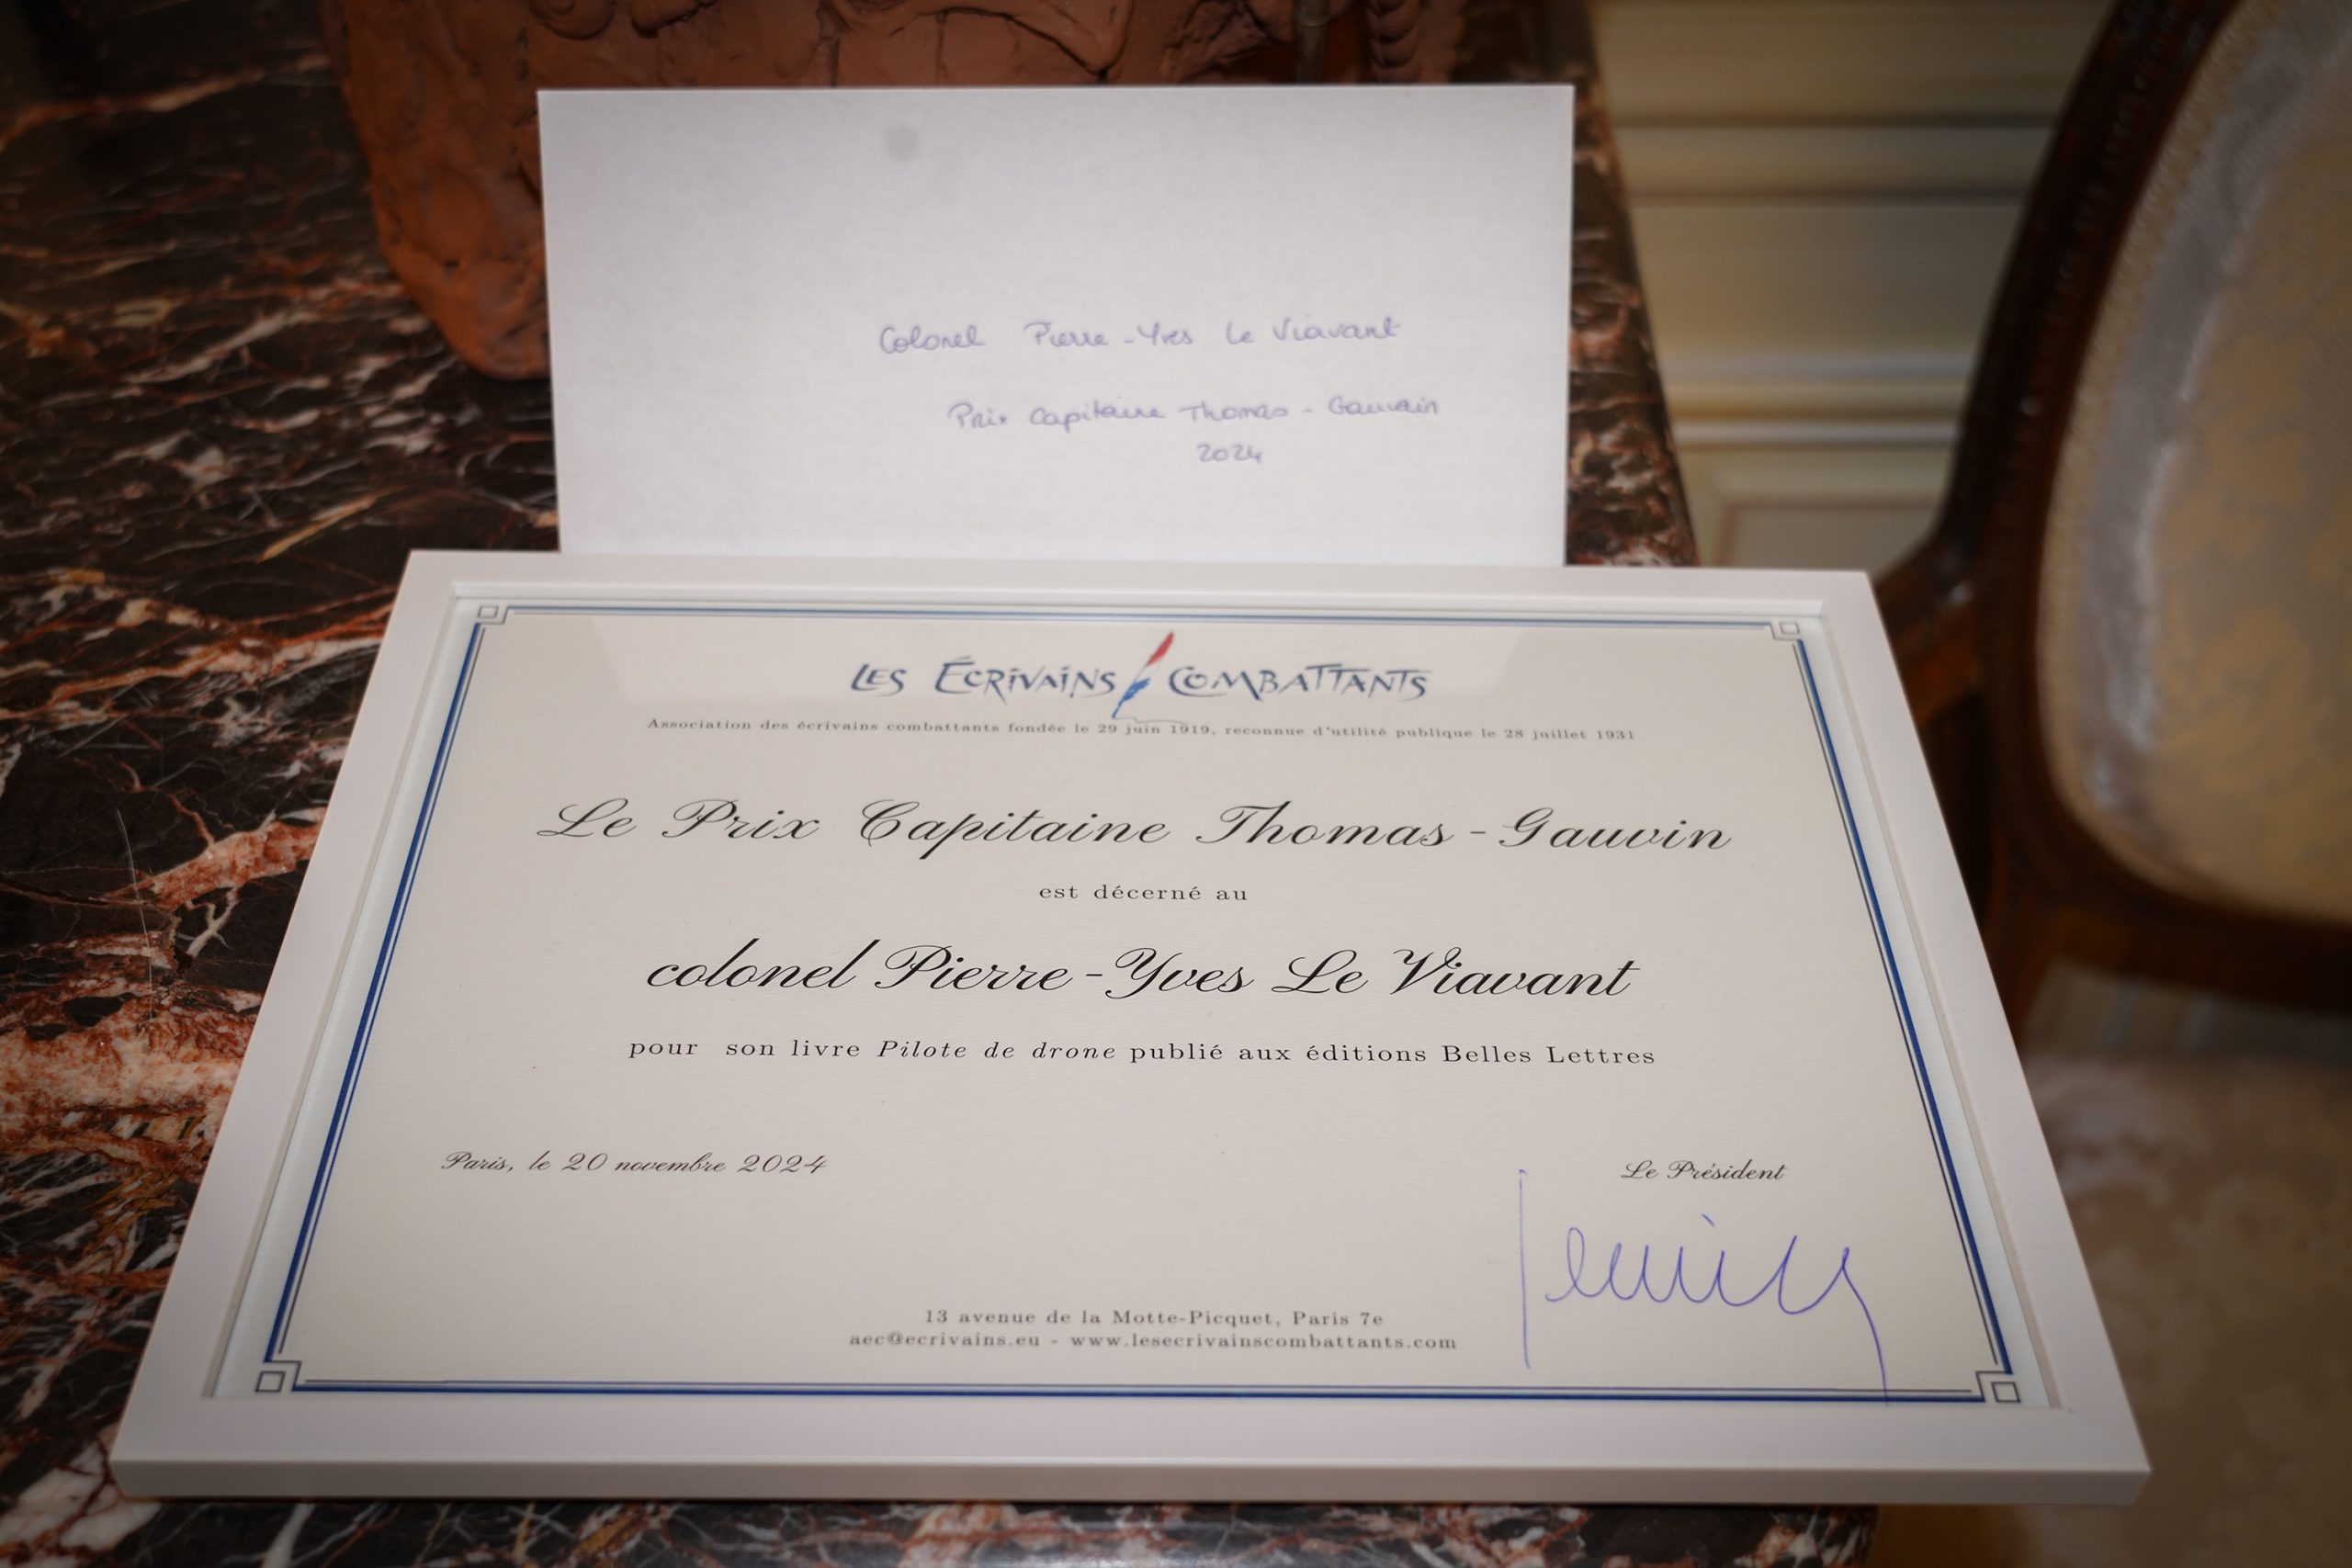 Colonel Pierre-Yves Le Viavant
Prix Capitaine Thomas-Gauvin
2024
LES ÉCRIVAINS COMBATTANTS
Association des écrivains combattants fondée le 29 juin 1919, reconnue d'utilité publique le 28 juillet 1931
Le Prix Capitaine Thomas-Gauvin
est décerné au
colonel Pierre-Yves Le Viavant
pour son livre Pilote de drone publié aux éditions Belles Lettres
Paris, le 20 novembre 2024
Le Président
13 avenue de la Motte-Picquet, Paris 7e
aec@ecrivains.eu - www.lesecrivainscombattants.com